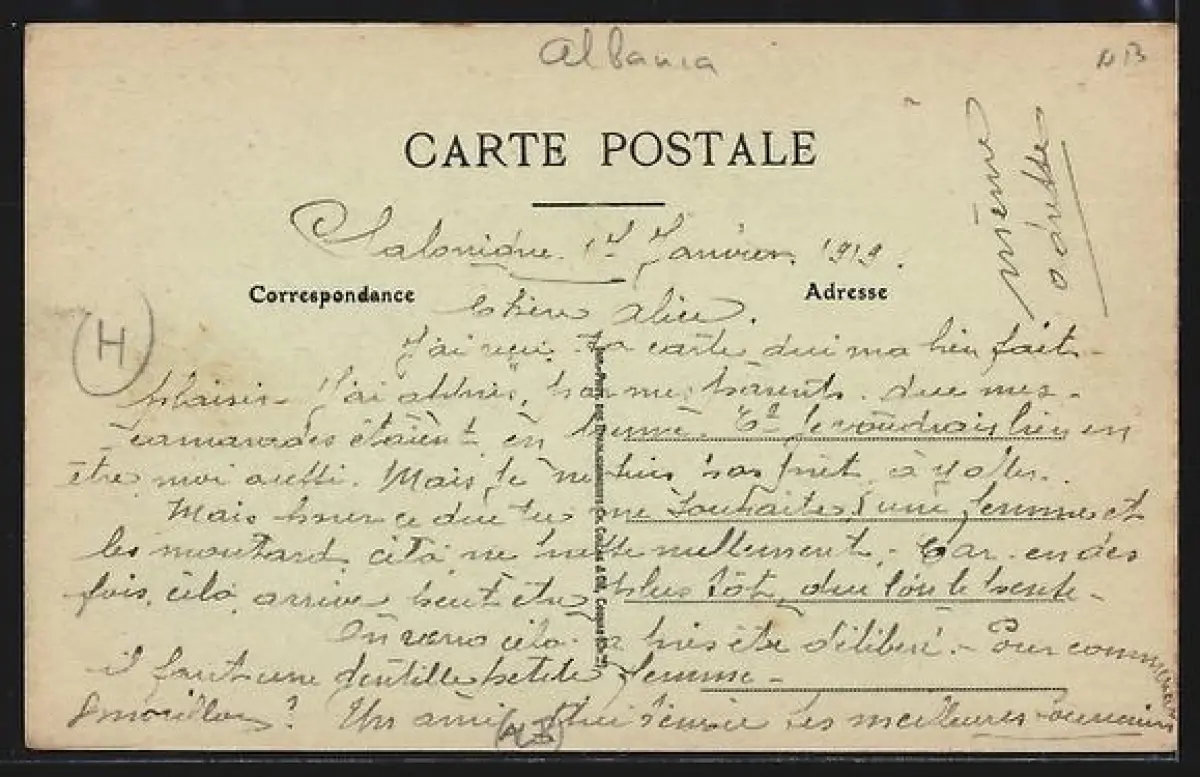 Albania
CARTE POSTALE
même
adresse
Salonique 1er Janvier 1919.
Correspondance
Adresse
chère Alice.
J'ai reçu ta carte qui ma bien fait
plaisir. J'ai appris, par mes parents que mes
camarades étaient en perme. Et Je voudrais bien en
être moi aussi. Mais je ne suis pas prêt à y aller.
Mais pour ce que tu me souhaites, une femme et
les moutard cela ne presse nullement. Car en des
fois, cela arrive peut être plus tôt que l'on le pense
On verra cela après être délibéré. Pour commencer
il faut une gentille petite femme
Un ami qui t'envoie ses meilleures souvenirs
H